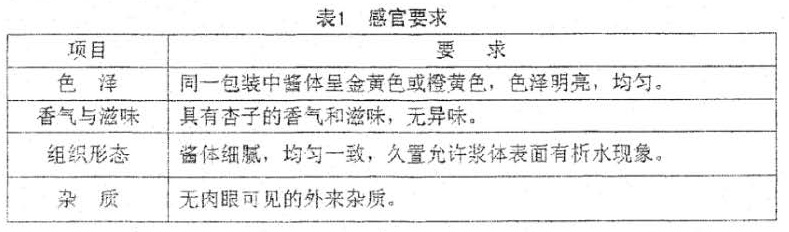 表1 感官要求
项目 要 求
色 泽 同一包装中酱体呈金黄色或橙黄色，色泽明亮，均匀。
香气与滋味 具有杏子的香气和滋味，无异味。
组织形态 酱体细腻，均匀一致，久置允许浆体表面有析水现象。
杂 质 无肉眼可见的外来杂质。